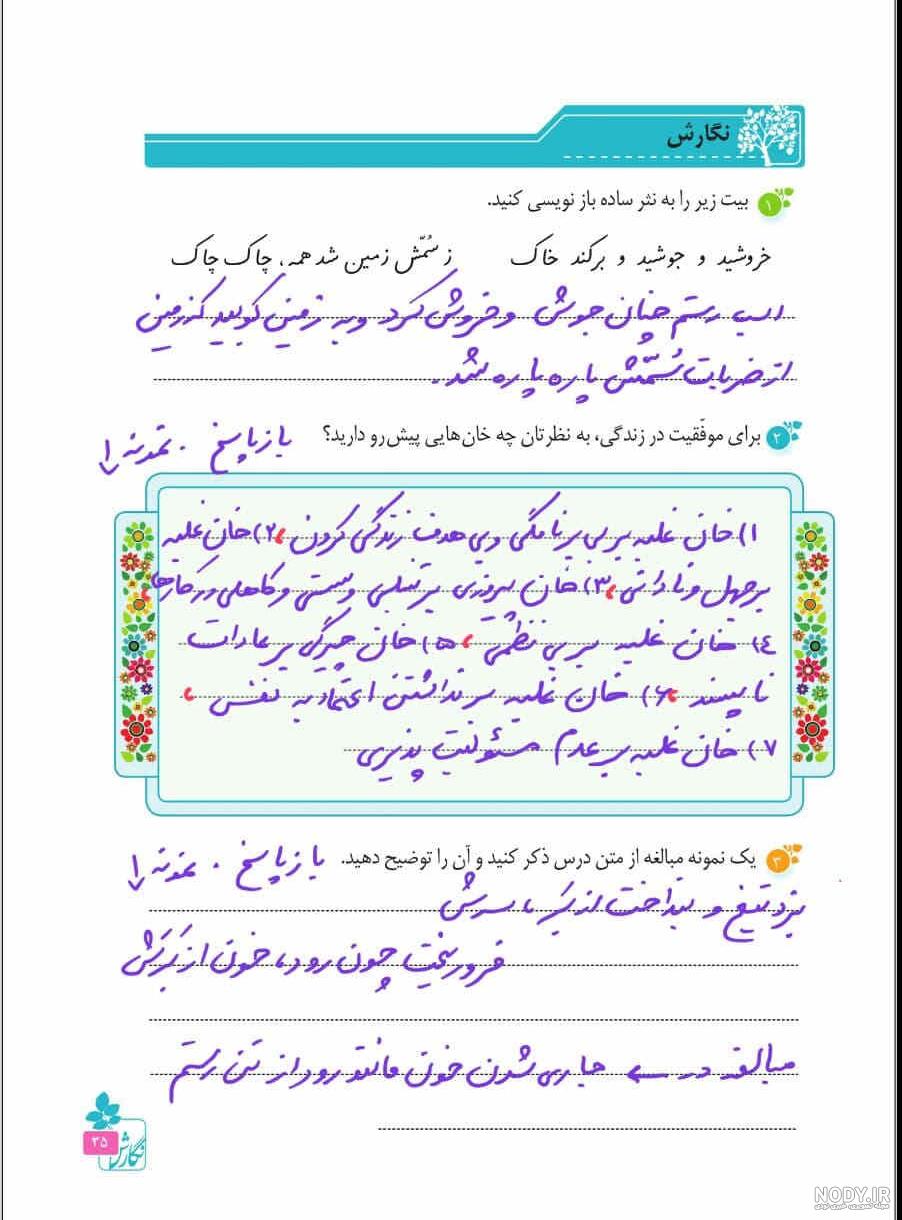 نگارش
۱ بیت زیر را به نثر ساده باز نویسی کنید.
خروشید و جوشید و برکند خاک ز سُمّش زمین شد همه، چاک چاک
اسب رستم چنان جوش و خروش کرد و به زمین کوبید که زمین
از ضربات سُمّش پاره پاره شد.
۲ برای موفّقیت در زندگی، به نظرتان چه خان‌هایی پیش‌رو دارید؟ باز پاسخ . نمونه ↓
۱) خان غلبه بر بی برنامگی و بی هدف زندگی کردن، ۲) خان غلبه
بر جهل و نادانی، ۳) خان پیروزی بر تنبلی و سستی و کاهلی در کارها،
۴) خان غلبه بر بی نظمی، ۵) خان چیرگی بر عادات
ناپسند، ۶) خان غلبه بر نداشتن اعتماد به نفس،
۷) خان غلبه بر عدم مسئولیت پذیری
۳ یک نمونه مبالغه از متن درس ذکر کنید و آن را توضیح دهید. باز پاسخ . نمونه ↓
بزد تیغ و بنداخت از بَر، سرش
فرو ریخت چون رود، خون از بَرَش
مبالغه در ← جاری شدن خون مانند رود از تن رستم
نگارش
۳۵
NODY.IR